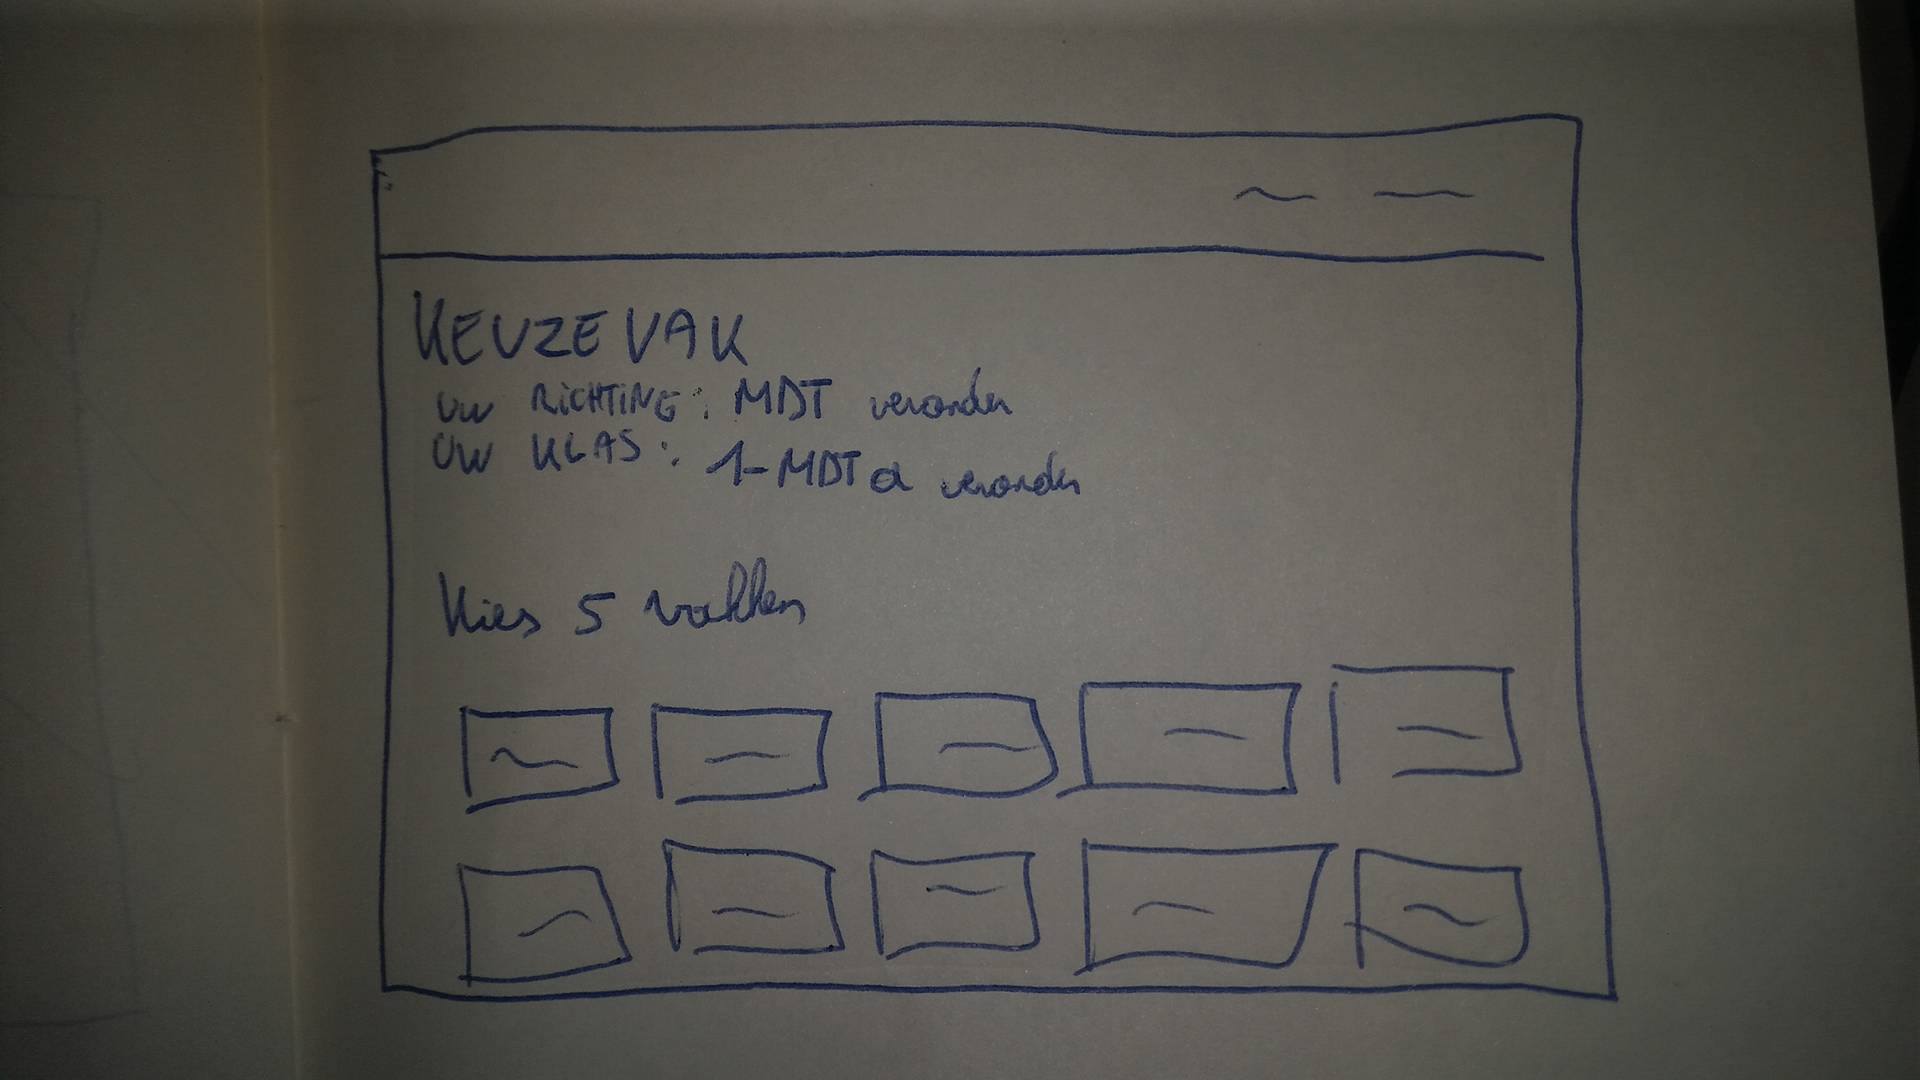 KEUZEVAK
UW RICHTING: MDT verander
UW KLAS: 1-MDT a verander
Kies 5 vakken